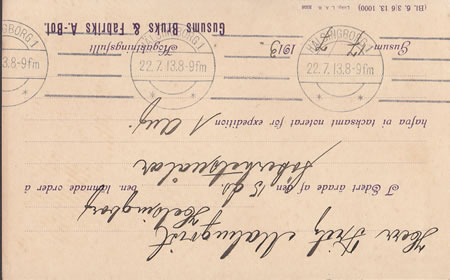 Herr Fritz Malmqvist
Helsingborg
I Edert ärade af den 15 ds. ben. lämnade order å
säkerhetsnålar
hafva vi tacksamt noterat för expedition 1 Aug
Gusum 17/7 1913
Högaktningsfullt
Gusums Bruks & Fabriks A.-Bol.
HÄLSINGBORG 1
22.7.13.8-9fm
HÄLSINGBORG 1
22.7.13.8-9fm
HÄLSINGBORG 1
13.8-9fm
(Bl. 6. 3/6 13. 1000)